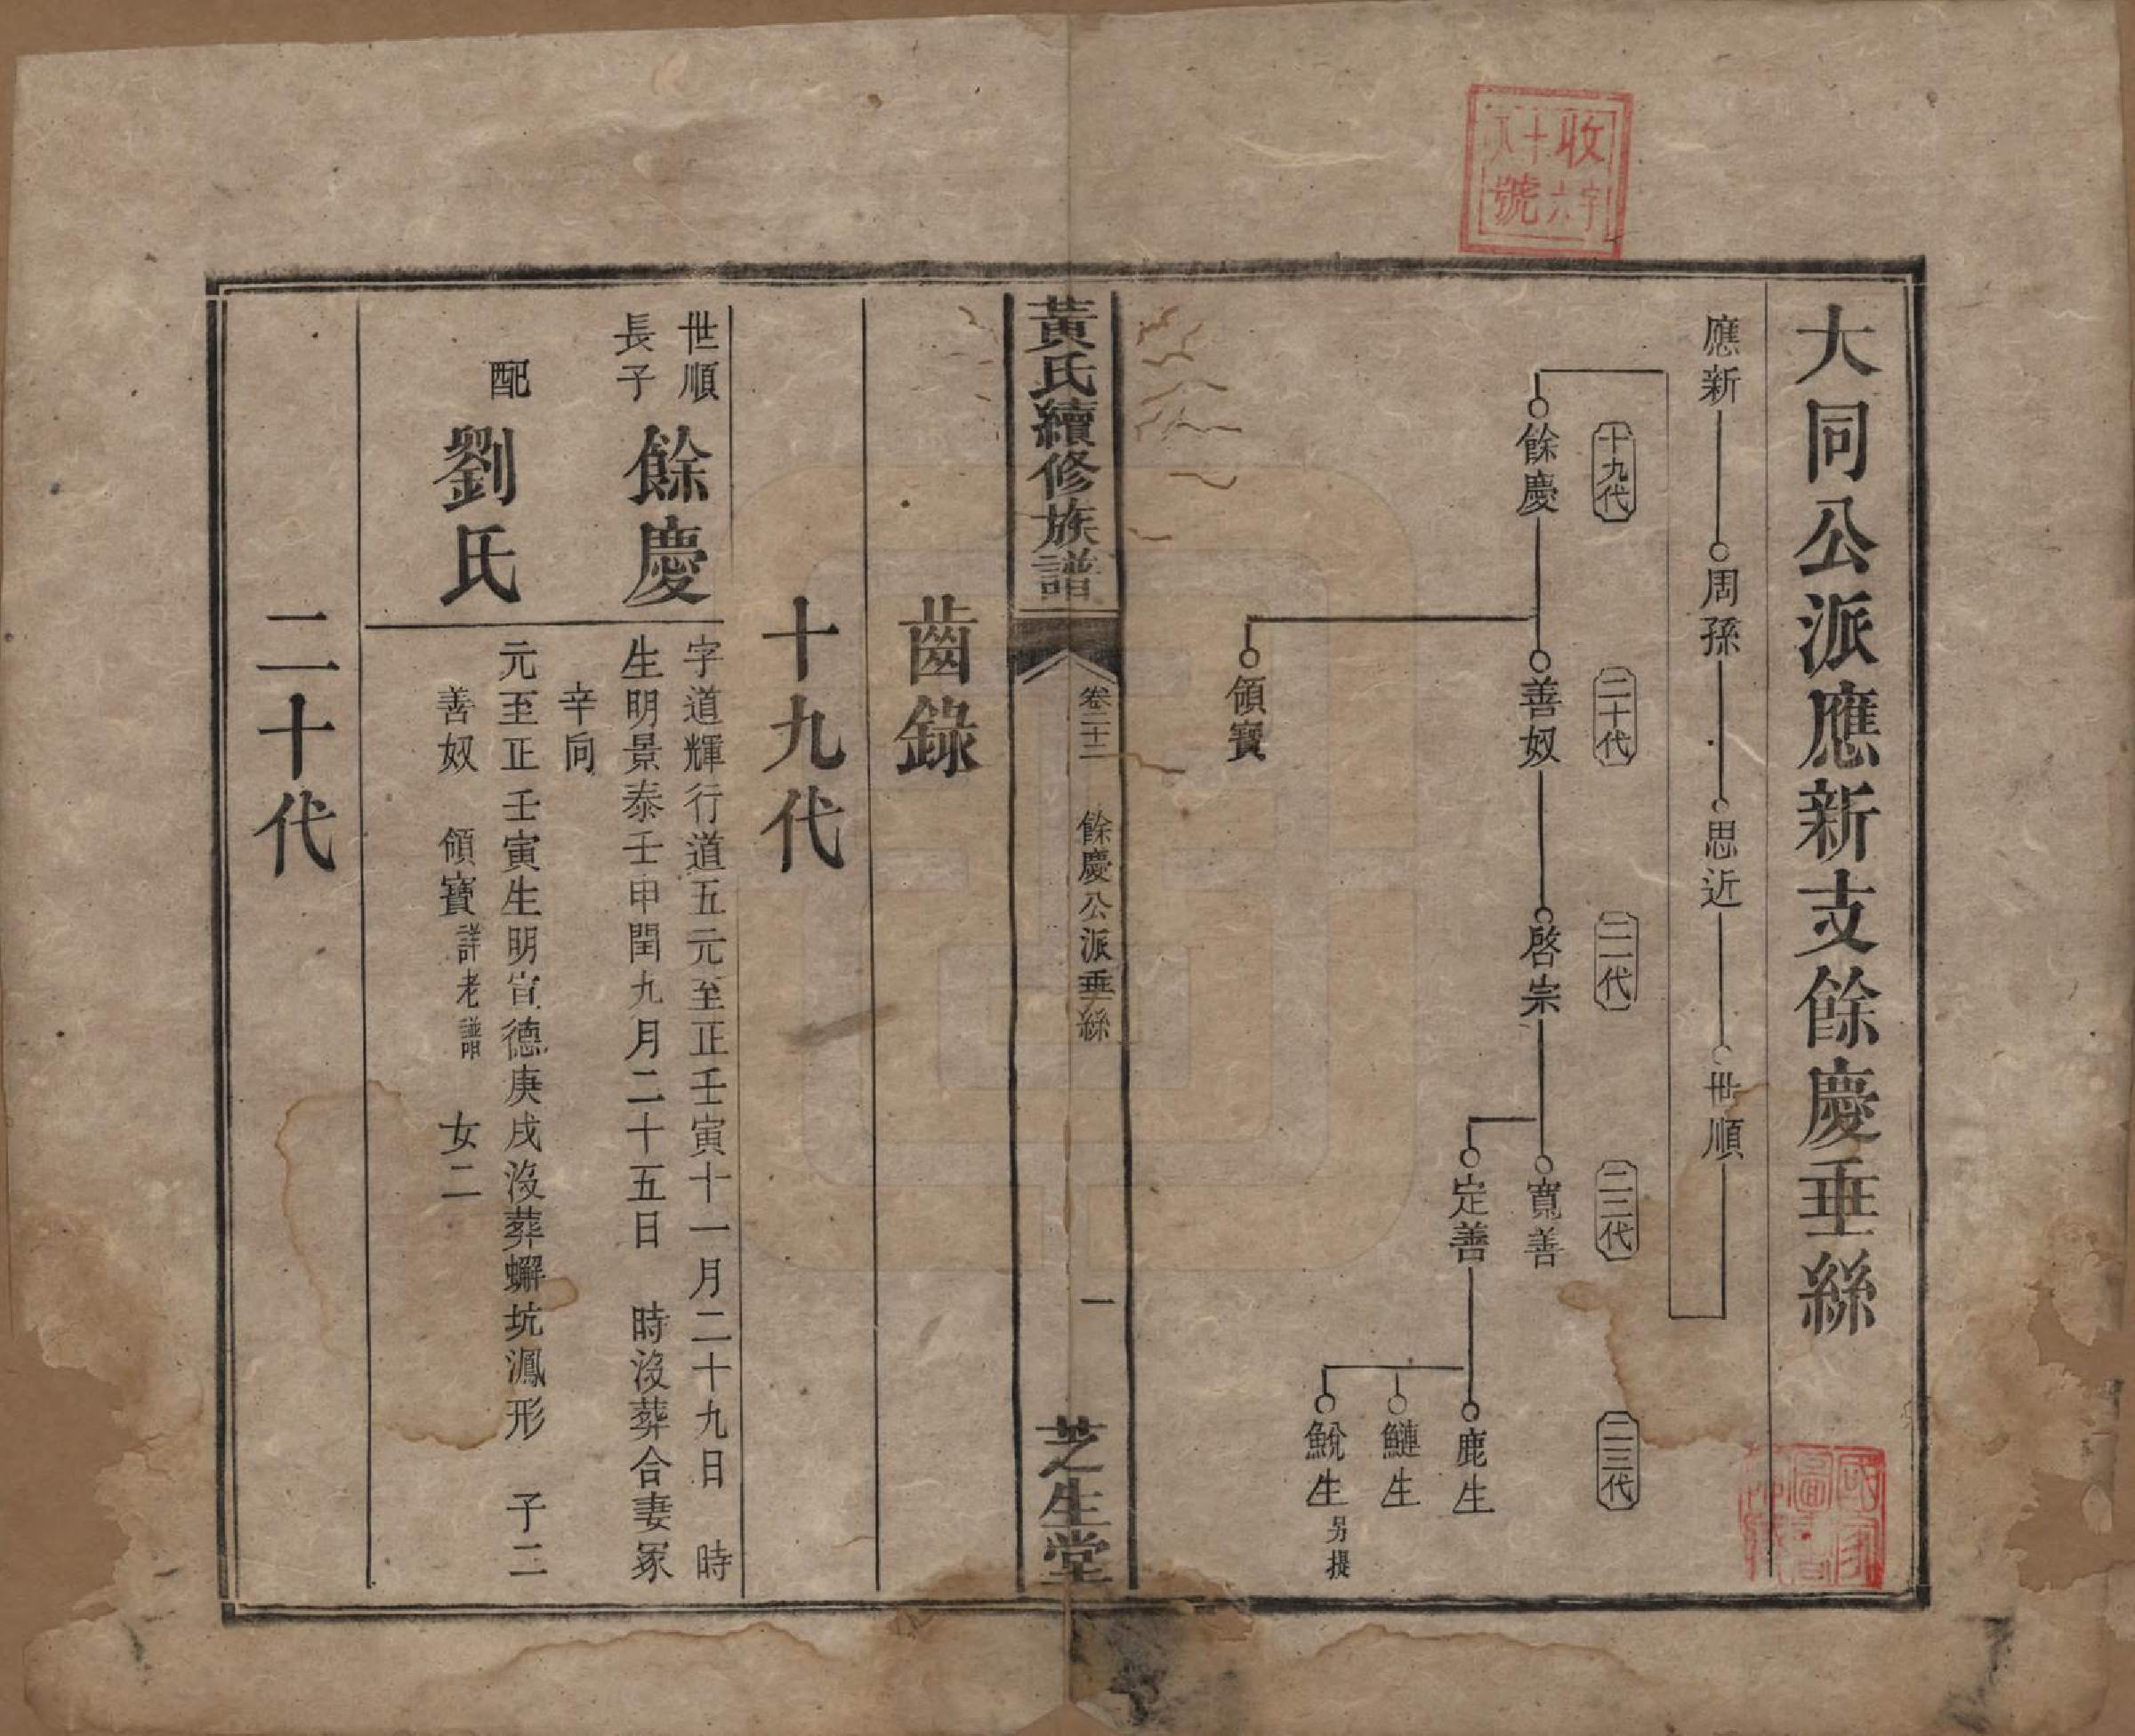 收字
十六
八號
大同公派應新支餘慶垂絲
應新 周孫 思近 世順
十九代 二十代 二一代 二二代 二三代
餘慶 善奴 啓宗 寬善
定善 鹿生
鰱生
鮵生 另提
領寶
黃氏續修族譜 卷二十二 餘慶公派垂絲 一 芝生堂
齒錄
十九代
世順
長子
餘慶
字道輝行道五元至正壬寅十一月二十九日 時
生明景泰壬申閏九月二十五日 時沒葬合妻冢
辛向
配
劉氏
元至正壬寅生明宣德庚戌沒葬蠏坑鳳形 子二
善奴 領寶詳老譜 女二
二十代